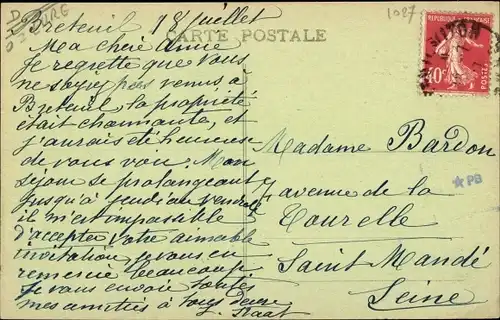 Breteuil 18 juillet
CARTE POSTALE
Ma chère amie
je regrette que vous
ne soyiez pas venus à
Breteuil, la propriété
était charmante, et
j'aurais été heureuse
de vous voir. Mon
séjour se prolongeant
jusqu'à jeudi
il m'est impossible
d'accepter votre aimable
invitation, je vous en
remercie beaucoup
je vous envoie toutes
mes amitiés à tous deux
RÉPUBLIQUE FRANÇAISE
40c
POSTES
Madame Bardon
7 avenue de la
Tourelle
Saint Mandé
Seine
★PB